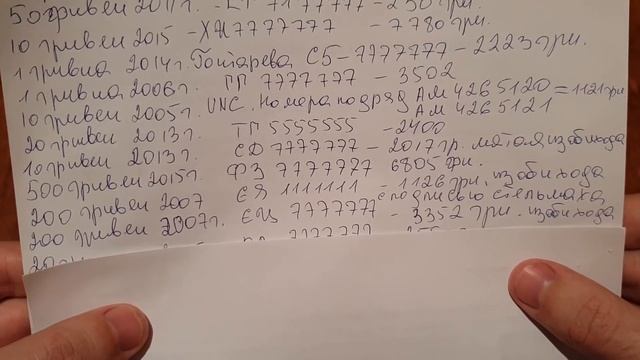 50 гривен 2011г. - 7177777 - 230 грн.
10 гривен 2015 - ХН7777777 - 7780 грн.
1 гривна 2014г. Гонтарева СБ-7777777 - 2223 грн.
1 гривна 2006г. ГГ 7777777 - 3502
10 гривен 2005г. UNC. Номера подряд АМ 4265120 = 1121 грн
АМ 4265121
20 гривен 2013г. ТП 5555555 - 2400
10 гривен 2013г. СД 7777777 - 2017 гр. мятая из обихода
500 гривен 2015г. ФЗ 7777777 6805 грн.
200 гривен 2007 ЕЯ 1111111 - 1126 грн. из обихода
с подписью стельмаха
200 гривен 2007г. ЕЦ 7777777 - 3352 грн. из обихода